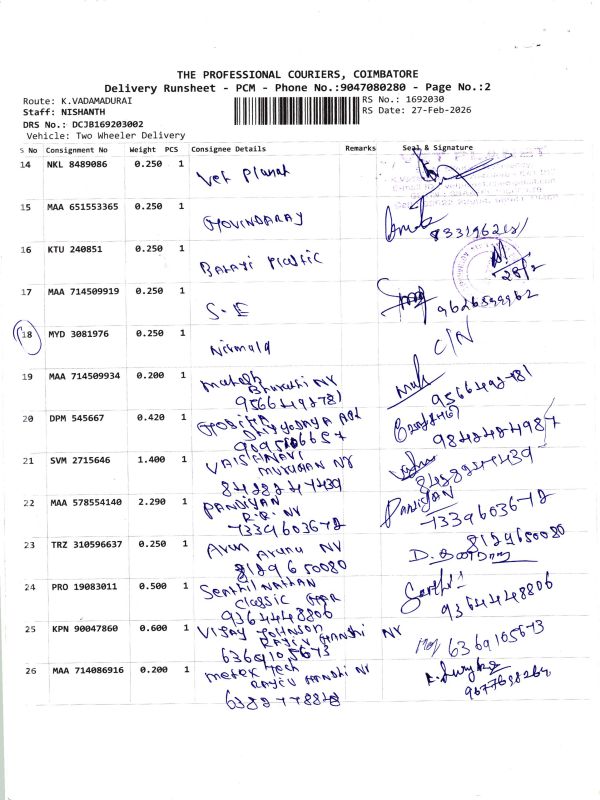 THE PROFESSIONAL COURIERS, COIMBATORE
Delivery Runsheet - PCM - Phone No.:9047080280 - Page No.:2
Route: K.VADAMADURAI
RS No.: 1692030
Staff: NISHANTH
RS Date: 27-Feb-2026
DRS No.: DCJB169203002
Vehicle: Two Wheeler Delivery
S No Consignment No Weight PCS Consignee Details Remarks Seal & Signature
14 NKL 8489086 0.250 1 Vet Planet
15 MAA 651553365 0.250 1 GOVINDARAY
16 KTU 240851 0.250 1 BALAJI Plastic
28/2
17 MAA 714509919 0.250 1 S.E
9626599962
18 MYD 3081976 0.250 1 Nirmala C/N
19 MAA 714509934 0.200 1 Mahesh
Bharathi NY
9566492781 9566492781
20 DPM 545667 0.420 1
9095106657 9842484987
21 SVM 2715646 1.400 1 VAISHNAVI
MURUGAN NY
8428247439 8428247439
22 MAA 578554140 2.290 1 PANDIYAN PANDIYAN
R.R. NY
7339603672 7339603672
23 TRZ 310596637 0.250 1 Arun Aruna NY
8129650080 8129650080
24 PRO 19083011 0.500 1 Senthil Nathan
Classic
9364448806 9364448806
25 KPN 90047860 0.600 1 VIJAY JOHNSON
RAJIV GANDHI NY
6369105673 6369105673
26 MAA 714086916 0.200 1 Meter Tech
RAJIV GANDHI NY
9677698269